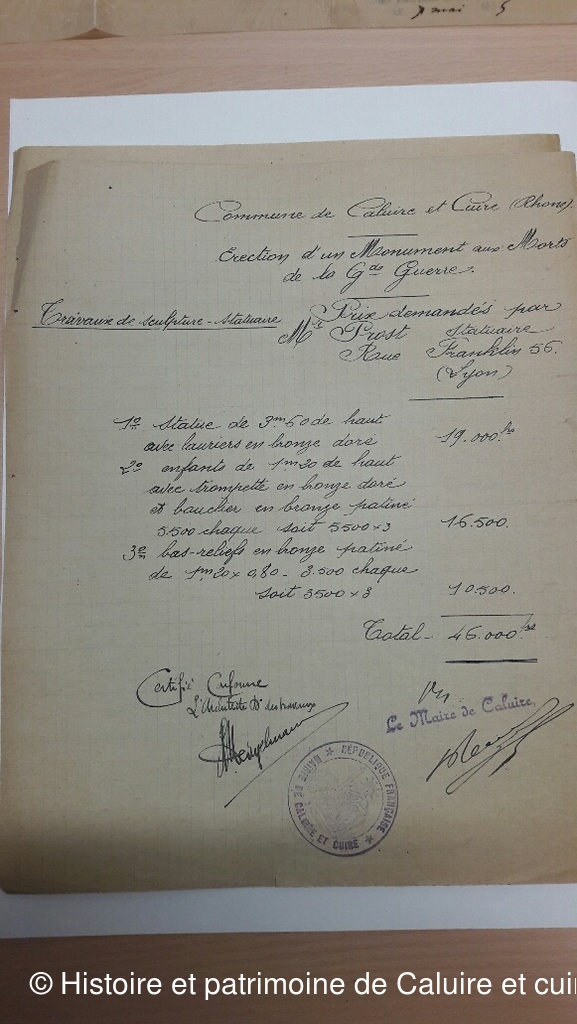 7 mai 5
Commune de Caluire et Cuire (Rhône).
Erection d'un Monument aux Morts
de la Gde Guerre.
Travaux de sculpture-statuaire
Prix demandés par
Mr Prost statuaire
Rue Franklin 56.
(Lyon)
1º statue de 3m50 de haut
avec lauriers en bronze doré 19.000.frs
2º enfants de 1m20 de haut
avec trompette en bronze doré
et bouclier en bronze patiné
5.500 chaque soit 5500 x 3 16.500.
3º bas-reliefs en bronze patiné
de 1m20 x 0,80 - 3.500 chaque
soit 3500 x 3 10.500.
Total - 46.000.frs
Certifié Conforme
L'Architecte Dr des travaux
Vu
Le Maire de Caluire,
MAIRIE DE CALUIRE ET CUIRE
RÉPUBLIQUE FRANÇAISE
© Histoire et patrimoine de Caluire et cuir